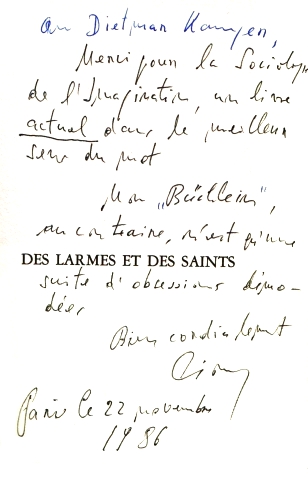 au Dietmar Kamper,
Merci pour la Sociologie
de l'Imagination, un livre
actuel dans le meilleur
sens du mot
Mon „Büchlein",
au contraire, n'est qu'une
DES LARMES ET DES SAINTS
suite d'obsessions démo-
dées
Bien cordialement
Cioran
Paris le 22 novembre
1986